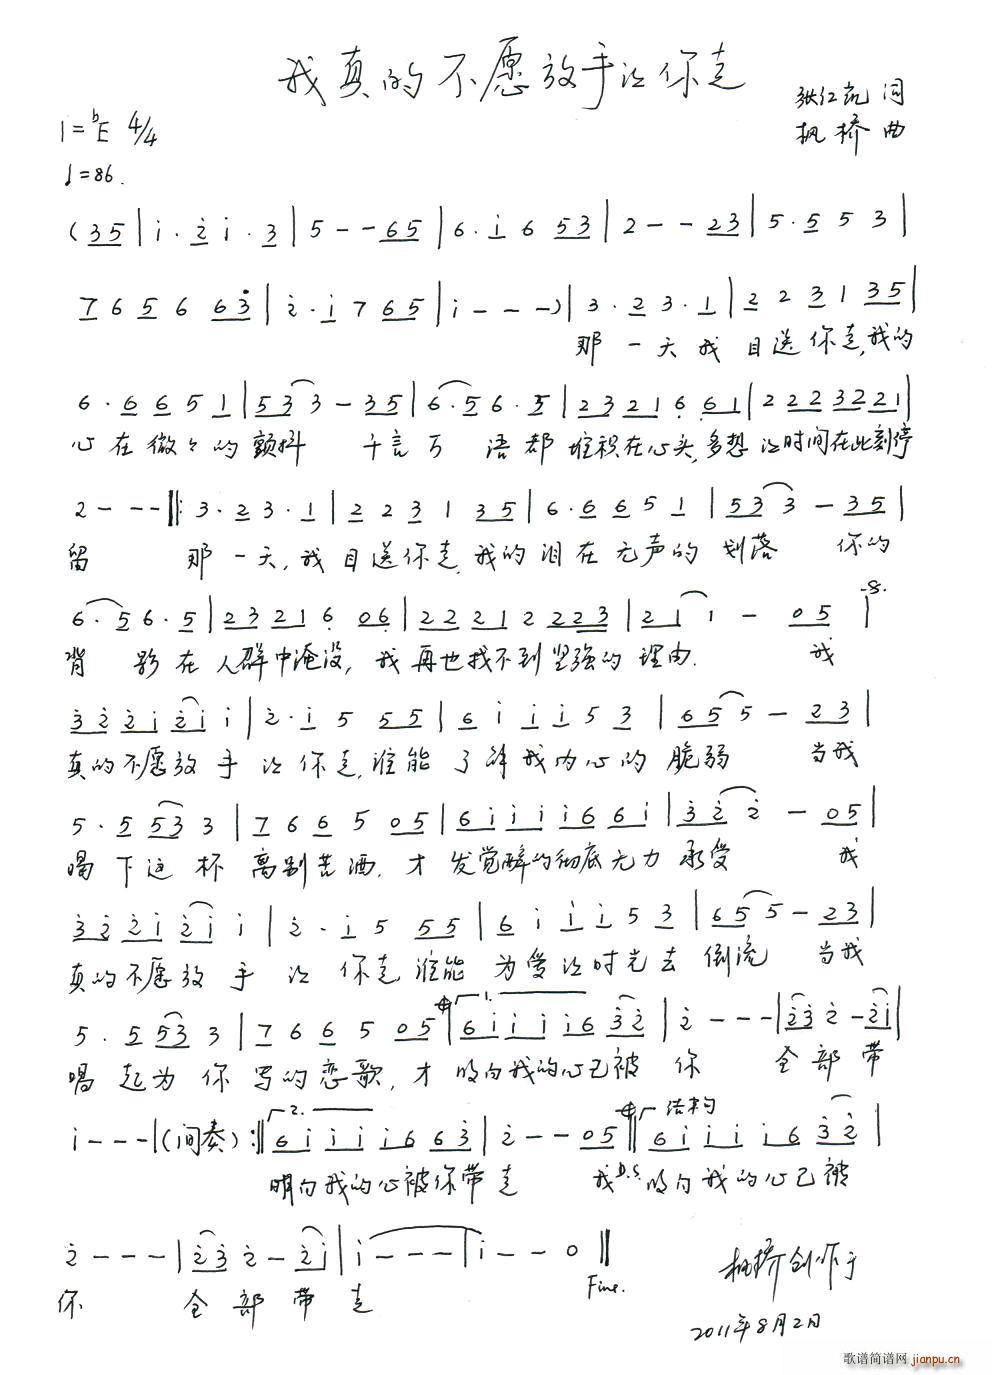 我真的不愿放手让你走
张红凯 词
枫桥 曲
1=♭E 4/4
♩=86.
(35|i·2i·3|5--65|6·i653|2--23|5·553|
765663|2·i765|i---)|3·23·1|2231 35|
那一天我目送你走,我的
6·6651|533-35|6·56·5|2321661|2223221|
心在微々的颤抖 千言万语都堆积在心头,多想让时间在此刻停
2---‖:3·23·1|223135|6·6651|533-35|
留 那一天,我目送你走,我的泪在无声的划落 你的
6·56·5|2321606|222122223|211-05|
背影在人群中淹没,我再也找不到坚强的理由. 我
322i2ii|2·i555|6iii53|655-23|
真的不愿放手让你走,谁能了解我内心的脆弱 当我
5·5533|766505|6iiii66i|322-05|
喝下这杯离别苦酒,才发觉醉的彻底无力承受 我
322i2ii|2·i555|6iii53|655-23|
真的不愿放手让你走谁能为爱让时光去倒流 当我
5·5533|766505‖1.6iiii632|2---|232-2i|
唱起为你写的恋歌,才明白我的心已被你 全部带
i---|(间奏):‖2.6iiii663|2--05‖结构 6iiii632|
明白我的心被你带走 我D.S.明白我的心已被
2---|232-2i|i---|i--0‖
你 全部带走 Fine.
枫桥创作于
2011年8月2日
歌谱简谱网 jianpu.cn